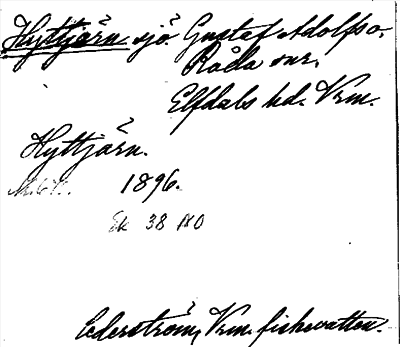 Hyttjärn, sjö Gustaf Adolfs o.
Råda snr,
Elfdals hd. Vrm.
Hyttjärn.
1896.
Ek 38 NO
Cederström, Vrm. fiskevatten.